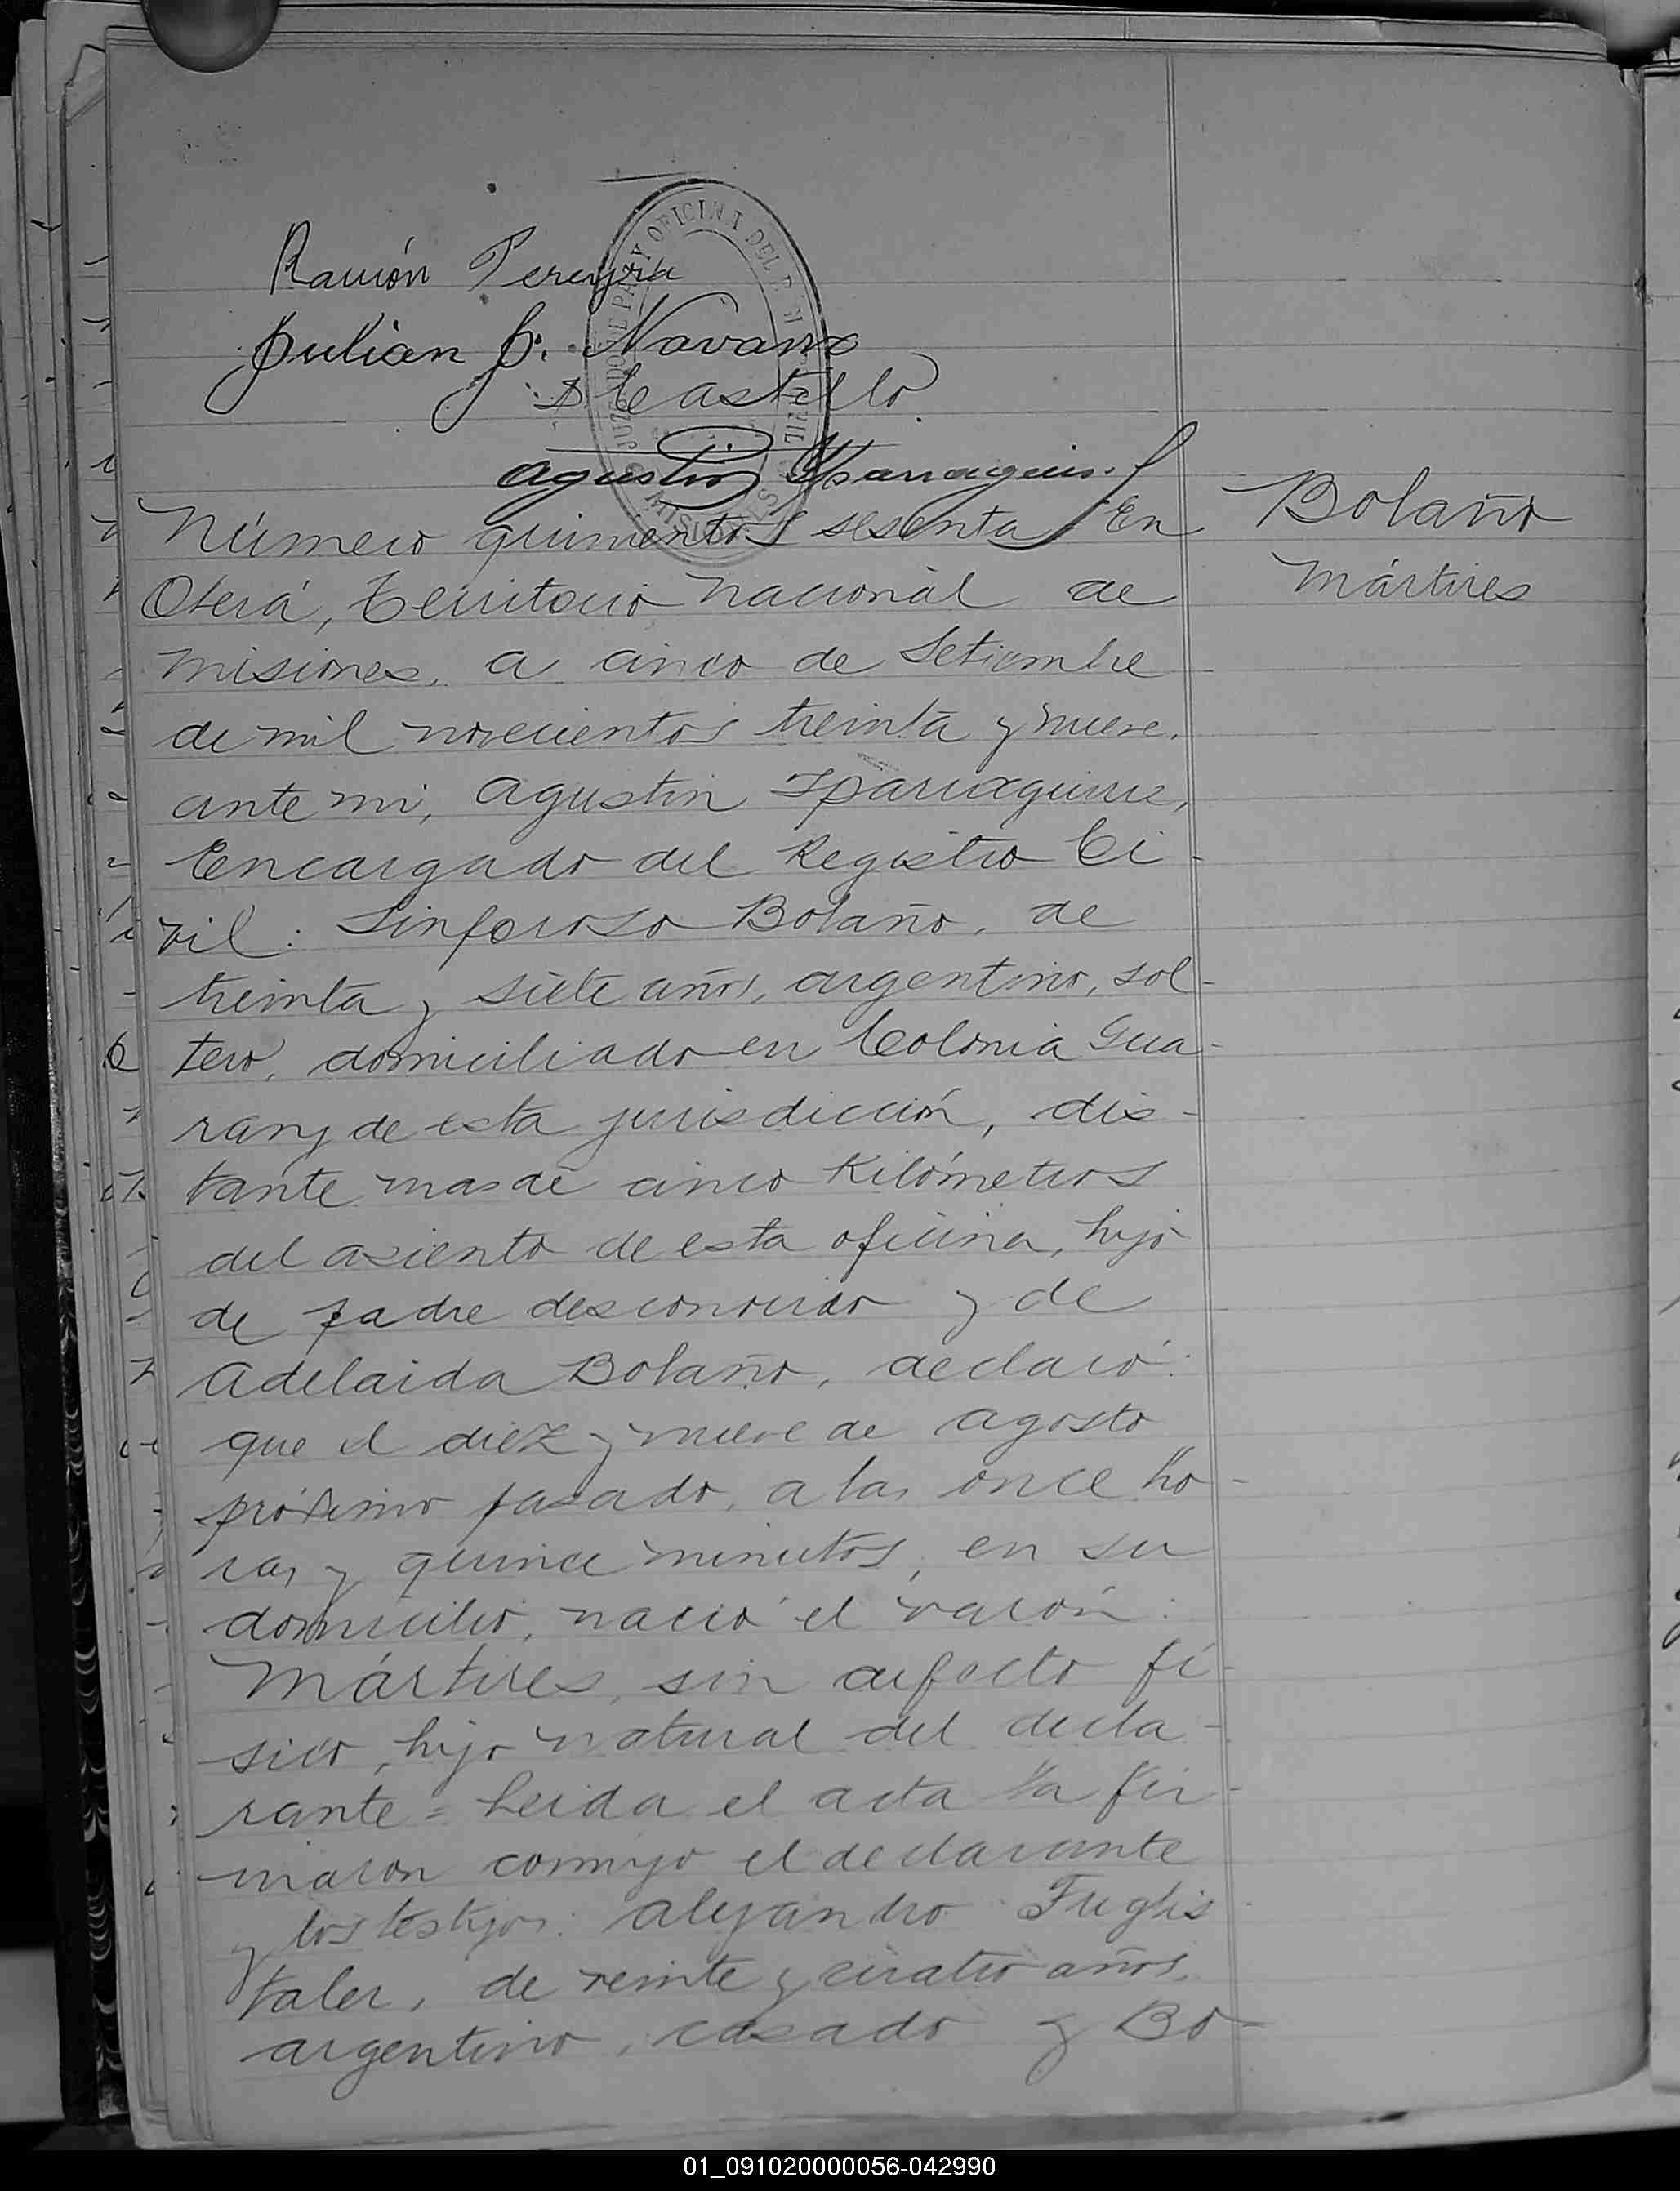 Ramón Pereyra
Julian J. Navarro
Castillo
JUZGADO DE PAZ Y OFICINA DEL REGISTRO CIVIL
MISIONES
Agustin Yparraguirre
Número quinientos sesenta En
Oberá, Territorio Nacional de
Misiones, a cinco de Setiembre
de mil novecientos treinta y nueve,
ante mi, Agustin Yparraguirre,
Encargado del Registro Ci-
vil: Sinforoso Bolaño, de
treinta y siete años, argentino, sol-
tero, domiciliado en Colonia Gua-
rany de esta jurisdicción, dis-
tante mas de cinco Kilómetros
del asiento de esta oficina, hijo
de padre desconocido y de
Adelaida Bolaño, declaró:
que el diez y nueve de agosto
próximo pasado, a las once ho-
ras y quince minutos, en su
domicilio, nació el varón:
Mártires, sin defecto fí-
sico, hijo natural del decla-
rante = Leida el acta la fir-
maron conmigo el declarante
y los testigos: Alejandro Fuglis
taler, de veinte y cuatro años,
argentino, casado y Bo-
Bolaño
Mártires
01_091020000056-042990